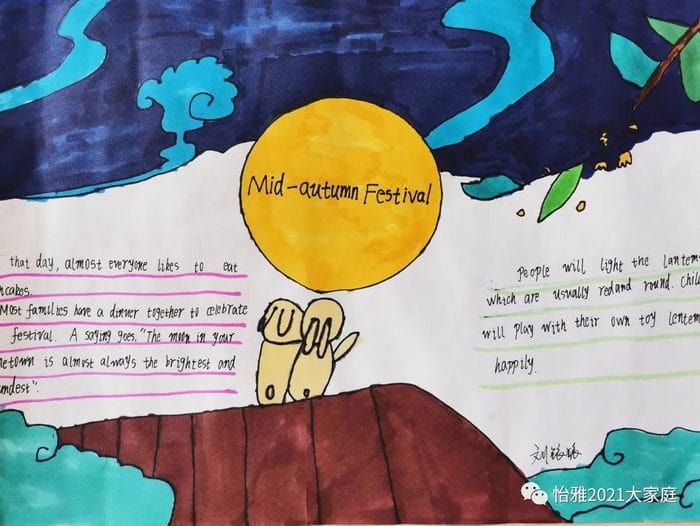 Mid-autumn Festival
that day, almost everyone likes to eat
ncakes.
Most families have a dinner together to celebrate
festival. A saying goes. "The moon in your
netown is almost always the brightest and
undest".
People will light the lantern
which are usually red and round. Chil
will play with their own toy lentern
happily.
怡雅2021大家庭